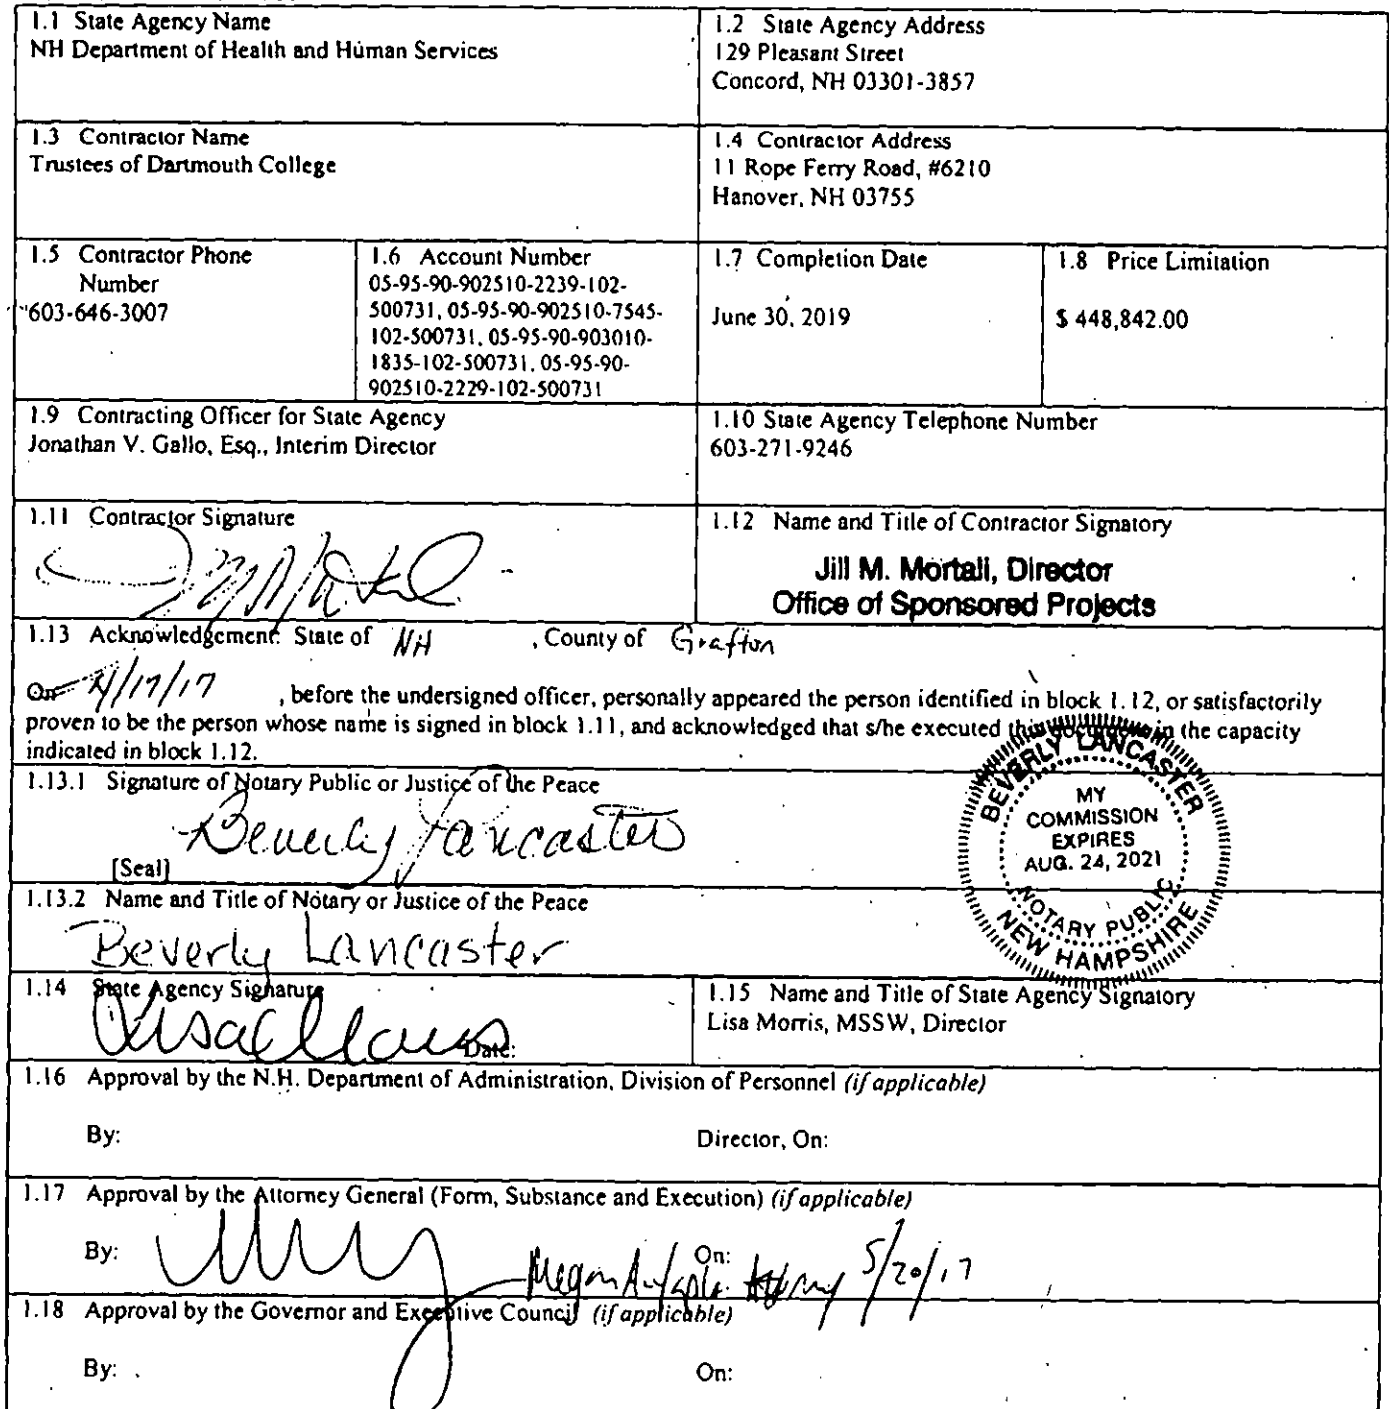 1.1 State Agency Name
NH Department of Health and Human Services
1.2 State Agency Address
129 Pleasant Street
Concord, NH 03301-3857
1.3 Contractor Name
Trustees of Dartmouth College
1.4 Contractor Address
11 Rope Ferry Road, #6210
Hanover, NH 03755
1.5 Contractor Phone
Number
603-646-3007
1.6 Account Number
05-95-90-902510-2239-102-
500731, 05-95-90-902510-7545-
102-500731, 05-95-90-903010-
1835-102-500731, 05-95-90-
902510-2229-102-500731
1.7 Completion Date
June 30, 2019
1.8 Price Limitation
$ 448,842.00
1.9 Contracting Officer for State Agency
Jonathan V. Gallo, Esq., Interim Director
1.10 State Agency Telephone Number
603-271-9246
1.11 Contractor Signature
1.12 Name and Title of Contractor Signatory
Jill M. Mortali, Director
Office of Sponsored Projects
1.13 Acknowledgement: State of NH , County of Grafton
On 4/17/17 , before the undersigned officer, personally appeared the person identified in block 1.12, or satisfactorily
proven to be the person whose name is signed in block 1.11, and acknowledged that s/he executed this document in the capacity
indicated in block 1.12.
1.13.1 Signature of Notary Public or Justice of the Peace
Beverly Lancaster
[Seal]
BEVERLY LANCASTER
MY
COMMISSION
EXPIRES
AUG. 24, 2021
NOTARY PUBLIC
NEW HAMPSHIRE
1.13.2 Name and Title of Notary or Justice of the Peace
Beverly Lancaster
1.14 State Agency Signature
Date:
1.15 Name and Title of State Agency Signatory
Lisa Morris, MSSW, Director
1.16 Approval by the N.H. Department of Administration, Division of Personnel (if applicable)
By: Director, On:
1.17 Approval by the Attorney General (Form, Substance and Execution) (if applicable)
By: On: 5/20/17
Megan Attorney
1.18 Approval by the Governor and Executive Council (if applicable)
By: On: